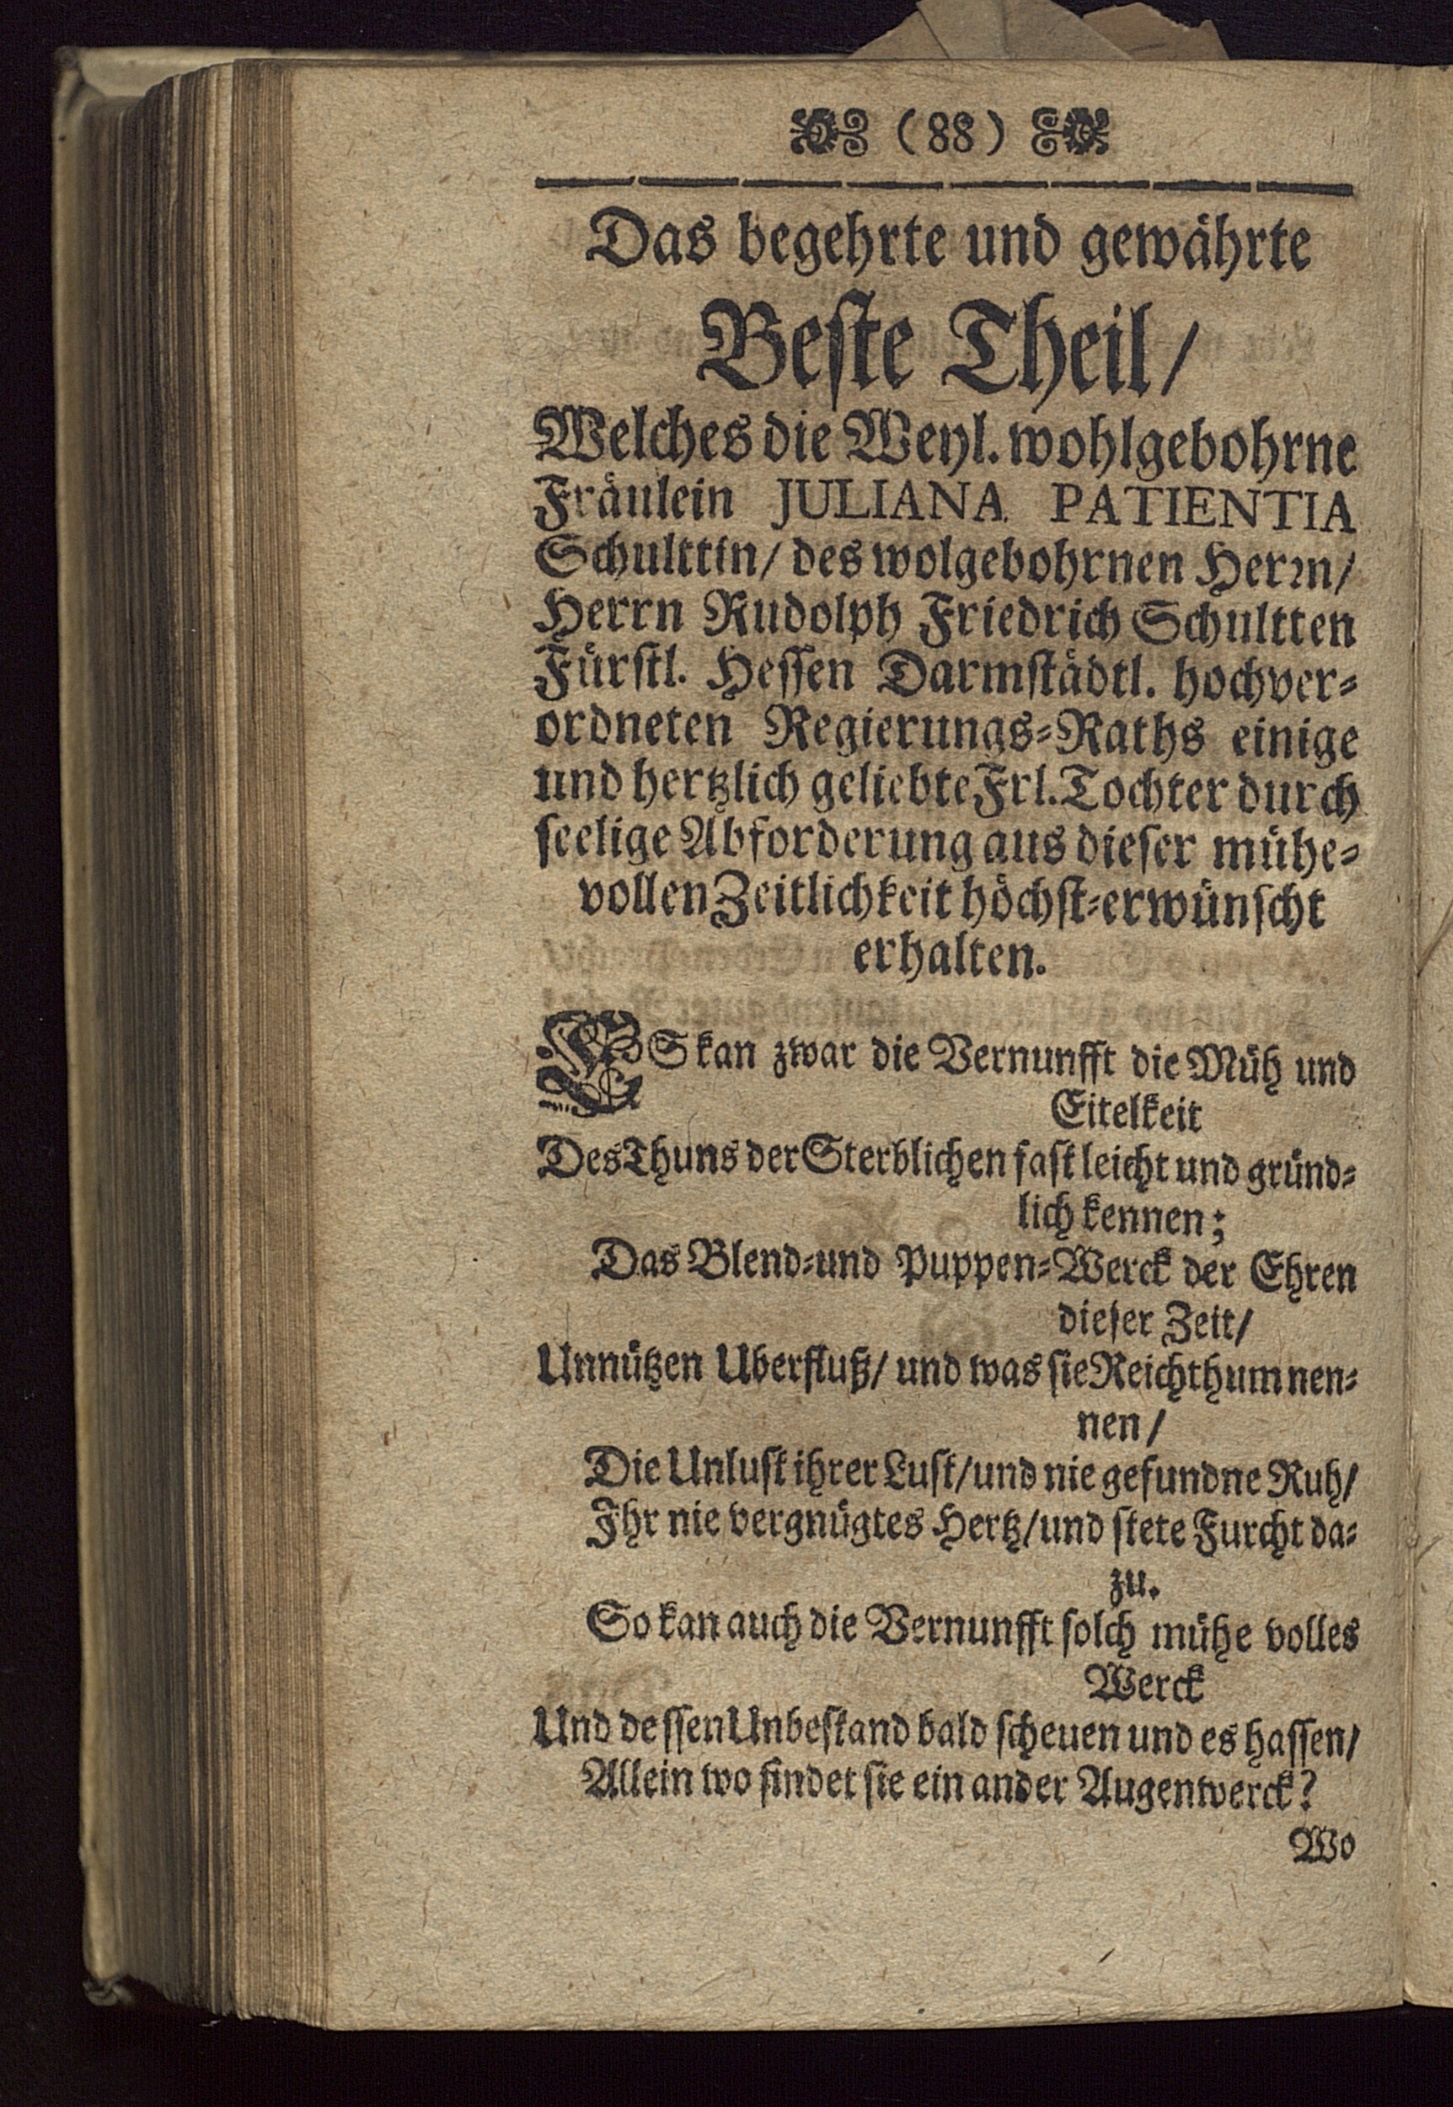 (88)
Das begehrte und gewährte
Beste Theil/
Welches die Weyl. wohlgebohrne
Fräulein JULIANA PATIENTIA
Schulttin/ des wolgebohrnen Herrn/
Herrn Rudolph Friedrich Schultten
Fürstl. Hessen Darmstädtl. hochver-
ordneten Regierungs-Raths einige
und hertzlich geliebte Frl. Tochter durch
seelige Abforderung aus dieser mühe-
vollen Zeitlichkeit höchst-erwünscht
erhalten.
ES kan zwar die Vernunfft die Müh und
Eitelkeit
Des Thuns der Sterblichen fast leicht und gründ-
lich kennen;
Das Blend-und Puppen-Werck der Ehren
dieser Zeit/
Unnützen Uberfluß/ und was sie Reichthum nen-
nen/
Die Unlust ihrer Lust/ und nie gefundne Ruh/
Ihr nie vergnügtes Hertz/ und stete Furcht da-
zu.
So kan auch die Vernunfft solch mühe volles
Werck
Und dessen Unbestand bald scheuen und es hassen/
Allein wo findet sie ein ander Augenwerck?
Wo